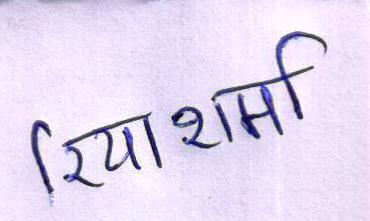 रिया शर्मा